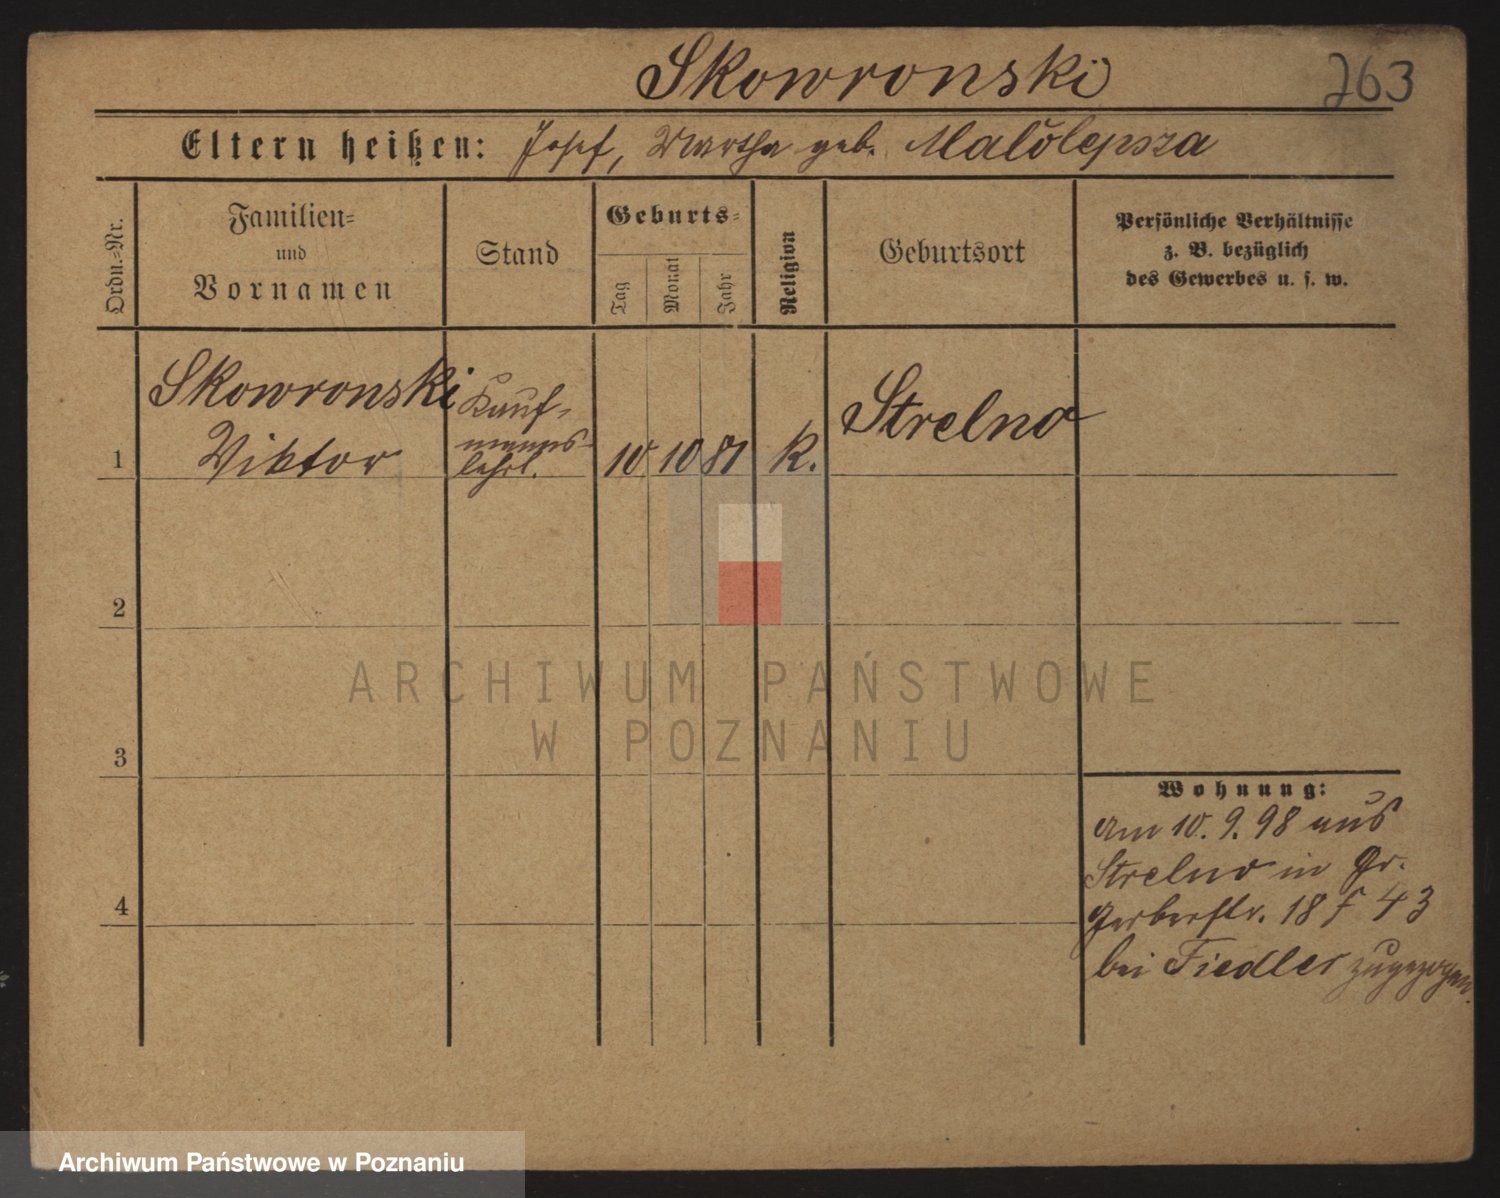 Skowronski
263
Eltern heißen: Josef, Martha geb. Malolepsza
Ordn.-Nr.
Familien-
und
Vornamen
Stand
Geburts-
Tag
Monat
Jahr
Religion
Geburtsort
Persönliche Verhältnisse
z. B. bezüglich
des Gewerbes u. s. w.
1
Skowronski
Viktor
Kauf-
manns-
lehrl.
10 10 81 K.
Strelno
2
3
4
Wohnung:
Am 10. 9. 98 aus
Strelno in Gr.
Gerberstr. 18 F 43
bei Fiedler zugezogen.
ARCHIWUM PAŃSTWOWE
W POZNANIU
Archiwum Państwowe w Poznaniu